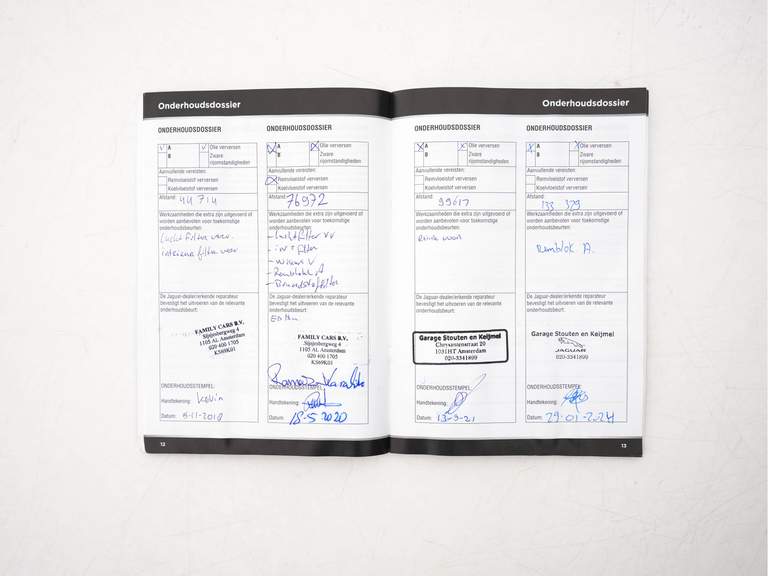 Onderhoudsdossier
ONDERHOUDSDOSSIER
A
Olie verversen
B
Zware
rijomstandigheden
Aanvullende vereisten:
Remvloeistof verversen
Koelvloeistof verversen
Afstand: 44 714
Werkzaamheden die extra zijn uitgevoerd of
worden aanbevolen voor toekomstige
onderhoudsbeurten:
De Jaguar-dealer/erkende reparateur
bevestigt het uitvoeren van de relevante
onderhoudsbeurt:
FAMILY CARS B.V.
Sijsjesbergweg 4
1105 AL Amsterdam
020 400 1705
KS69K01
ONDERHOUDSSTEMPEL:
Handtekening: Kevin
Datum:
12
ONDERHOUDSDOSSIER
A
Olie verversen
B
Zware
rijomstandigheden
Aanvullende vereisten:
Remvloeistof verversen
Koelvloeistof verversen
Afstand: 76972
Werkzaamheden die extra zijn uitgevoerd of
worden aanbevolen voor toekomstige
onderhoudsbeurten:
- Luchtfilter VV
- Remblokk A
- Brandstoffilter
De Jaguar-dealer/erkende reparateur
bevestigt het uitvoeren van de relevante
onderhoudsbeurt:
FAMILY CARS B.V.
Sijsjesbergweg 4
1105 AL Amsterdam
020 400 1705
KS69K01
ONDERHOUDSSTEMPEL:
Handtekening:
Datum: 18-5-2020
Onderhoudsdossier
ONDERHOUDSDOSSIER
A
Olie verversen
B
Zware
rijomstandigheden
Aanvullende vereisten:
Remvloeistof verversen
Koelvloeistof verversen
Afstand: 99617
Werkzaamheden die extra zijn uitgevoerd of
worden aanbevolen voor toekomstige
onderhoudsbeurten:
De Jaguar-dealer/erkende reparateur
bevestigt het uitvoeren van de relevante
onderhoudsbeurt:
Garage Stouten en Keijmel
Chrysantenstraat 20
1031HT Amsterdam
020-3341899
ONDERHOUDSSTEMPEL:
Handtekening:
Datum:
ONDERHOUDSDOSSIER
A
Olie verversen
B
Zware
rijomstandigheden
Aanvullende vereisten:
Remvloeistof verversen
Koelvloeistof verversen
Afstand: 133 329
Werkzaamheden die extra zijn uitgevoerd of
worden aanbevolen voor toekomstige
onderhoudsbeurten:
Remblok A.
De Jaguar-dealer/erkende reparateur
bevestigt het uitvoeren van de relevante
onderhoudsbeurt:
Garage Stouten en Keijmel
JAGUAR
020-3341899
ONDERHOUDSSTEMPEL:
Handtekening:
Datum: 29-01-2024
13